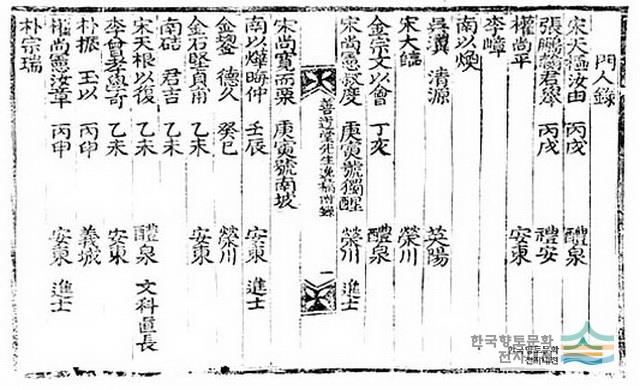 門人錄
宋天樞汝由 丙戌 醴泉
張鵬翼君擧 丙戌 禮安
權尚平 安東
李嶂
南以煥
吳瀷 清源 英陽
宋大臨 榮川
金宗文以會 丁亥 醴泉
宋尚憲叔度 庚寅號獨醒 榮川 進士
善迃堂先生逸稿附錄 一
宋尚寬而栗 庚寅號南坡
南以燁晦仲 壬辰 安東 進士
金鋈 德久 癸巳 榮川
金石堅貞甫 乙未 安東
南硈 君吉 乙未
宋天根以復 乙未 醴泉 文科直長
李會老魯奇 乙未 安東
朴振 玉以 丙申 義城
權尚憲汝章 丙申 安東 進士
朴宗瑞
한국향토문화
전자대전
한국향토문화
전자대전